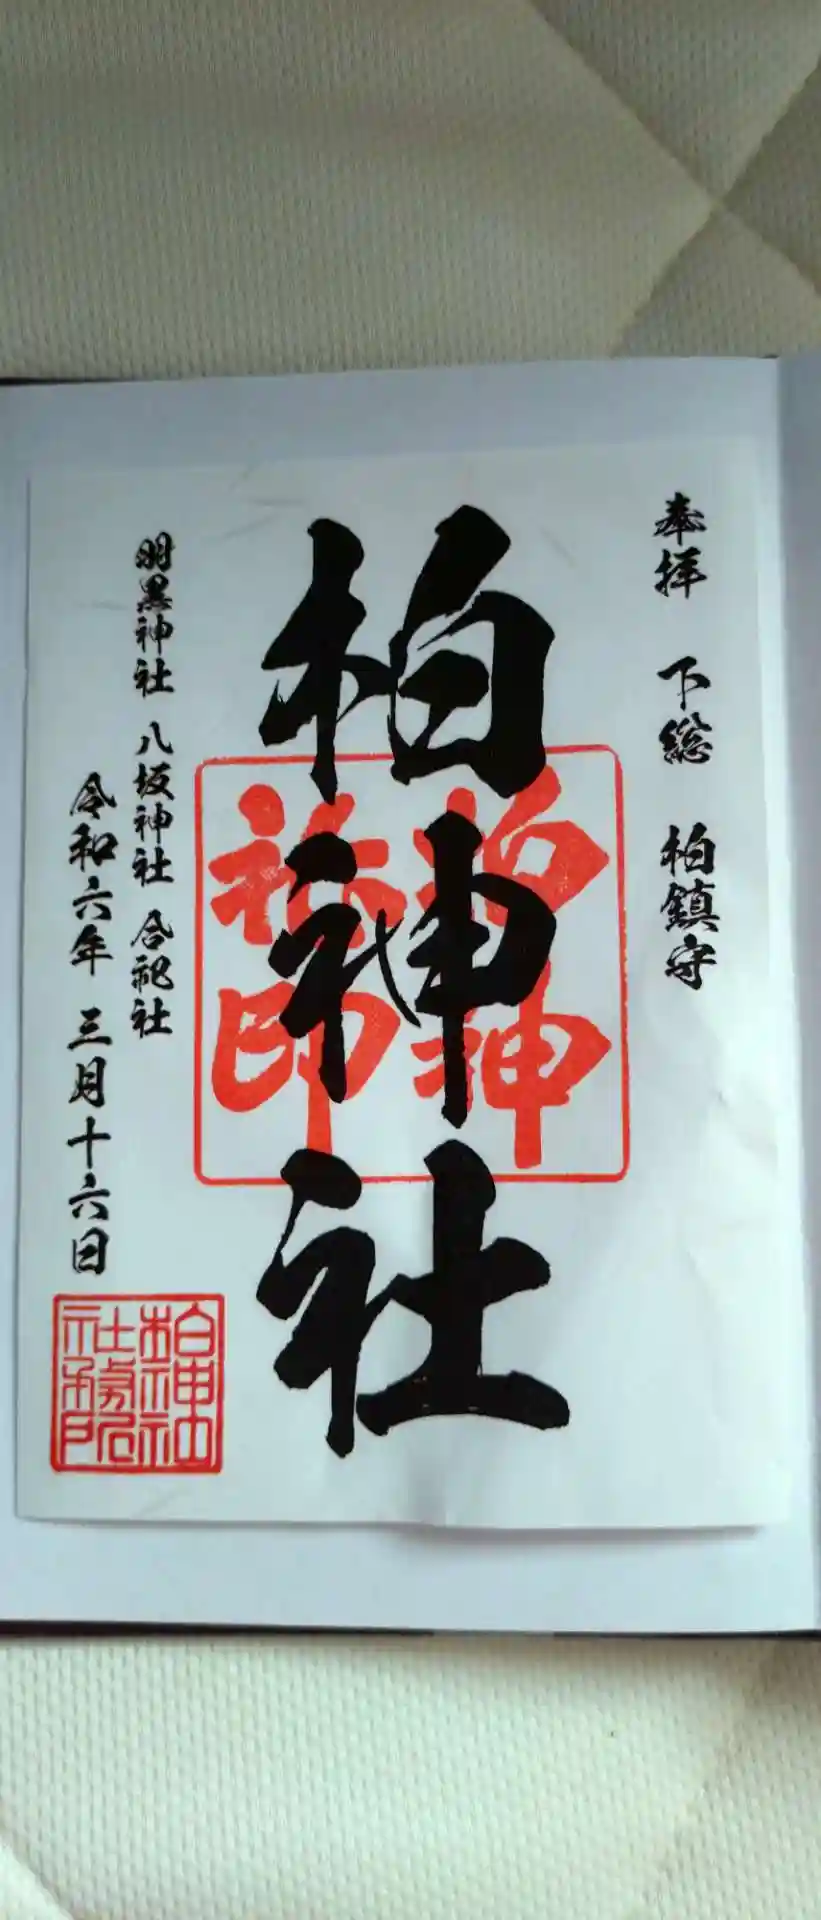 奉拝 下総 柏鎮守
柏神社
柏神
社印
羽黒神社 八坂神社 合祀社
令和六年 三月十六日
柏神社
社務所